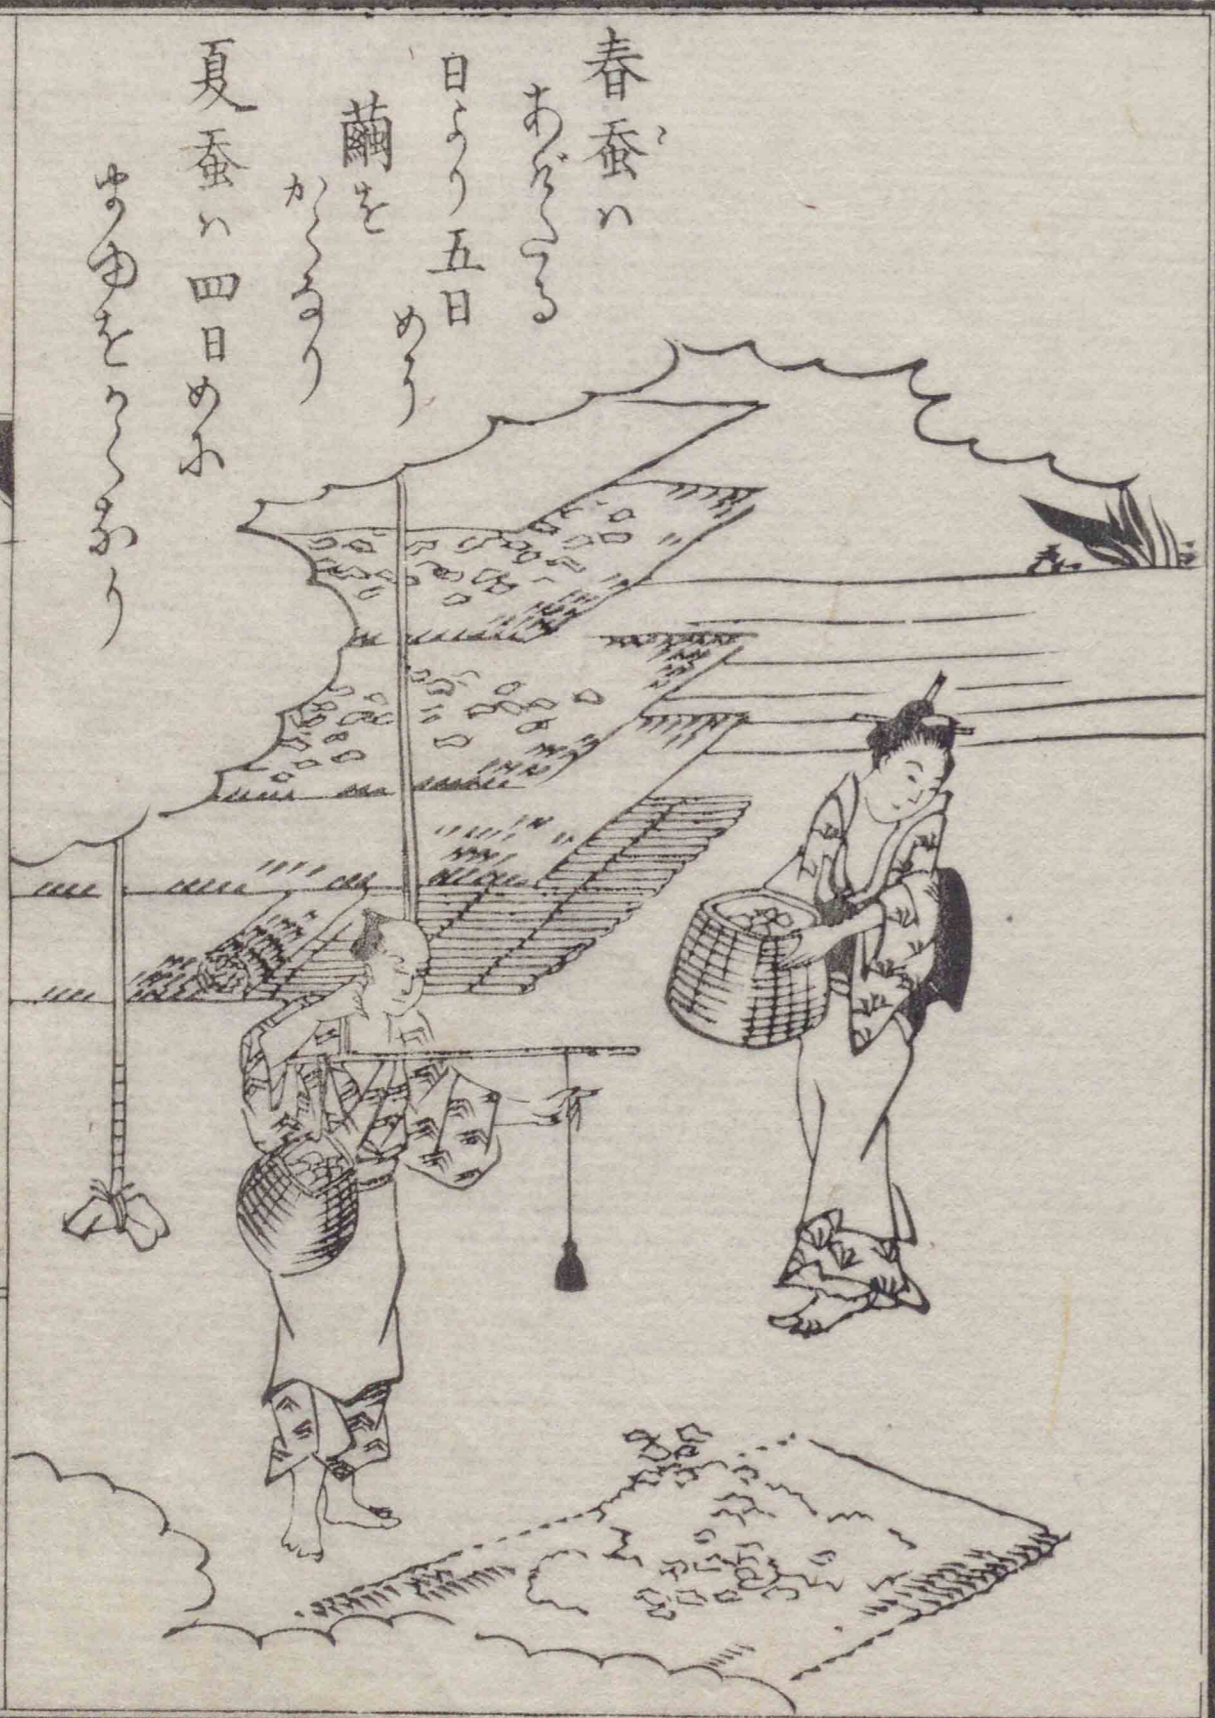 春蚕ハ
こ
あげたる
日より五日
め
繭を
かくなり
夏蚕ハ四日めに
まゆをかくなり